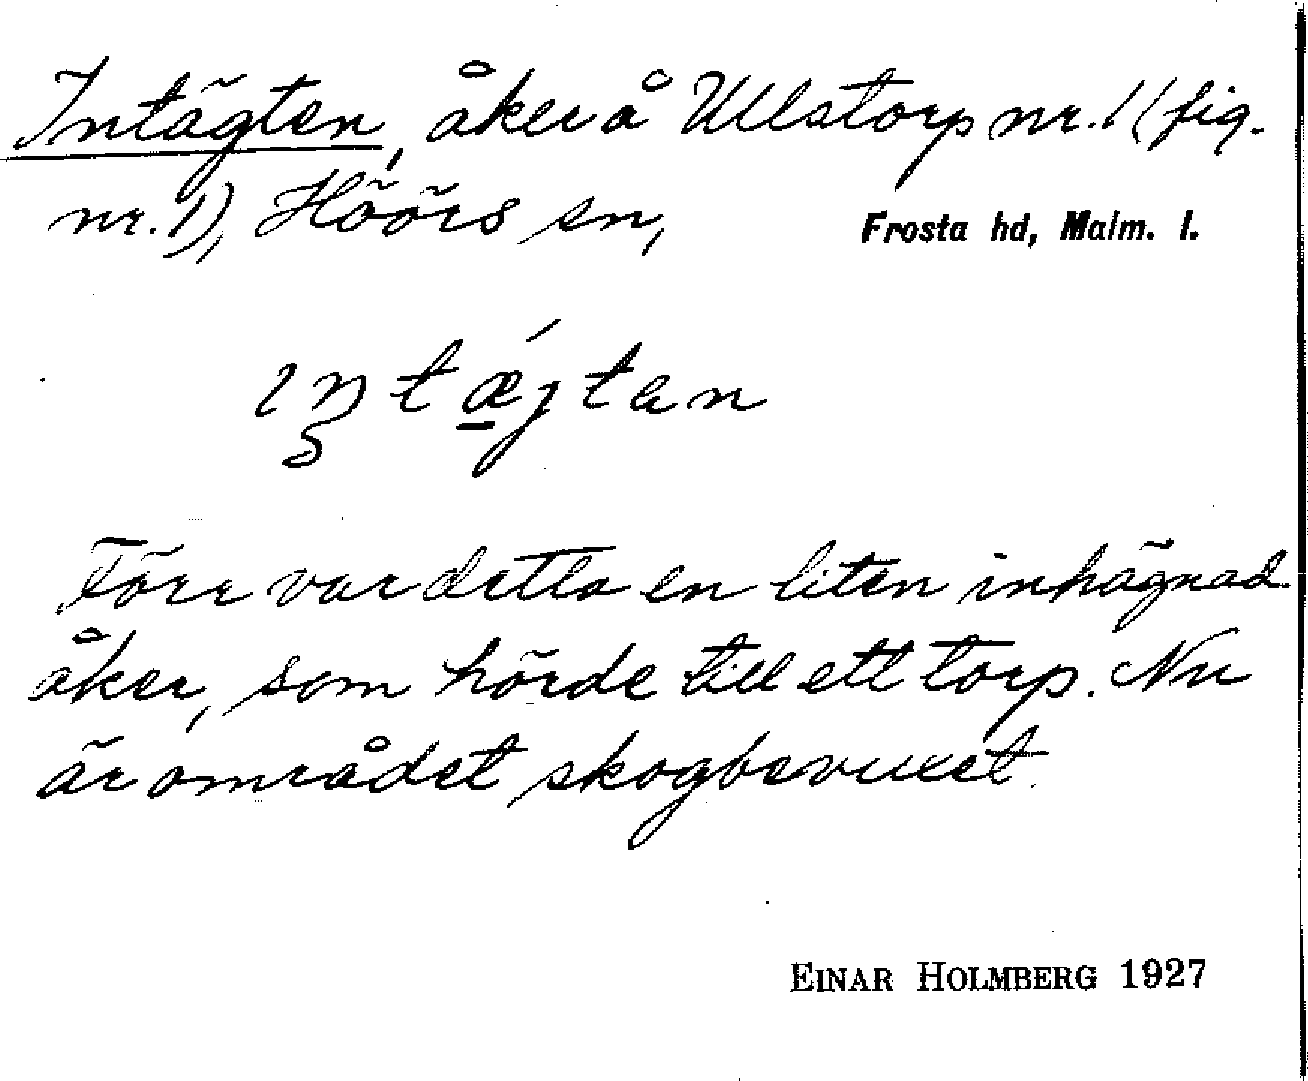 Intägten, åker å Ullstorp nr. 1 (fig.
nr. 1), Höörs sn, Frosta hd, Malm. l.
ɪn̥tǽjtan
Förr var detta en liten inhägnad
åker, som hörde till ett torp. Nu
är området skogbevuxet.
EINAR HOLMBERG 1927